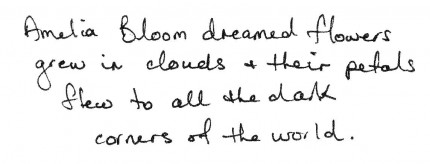 Amelia Bloom dreamed flowers
grew in clouds + their petals
flew to all the dark
corners of the world.